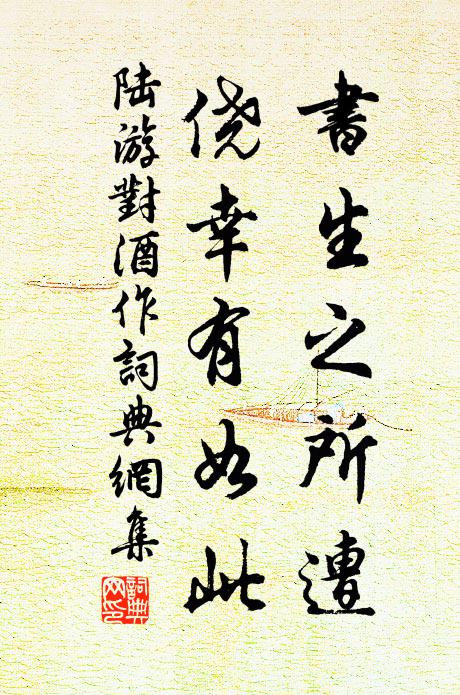 書生之所遭
侥幸有如此
陆游對酒作詞典網集
詞典网印